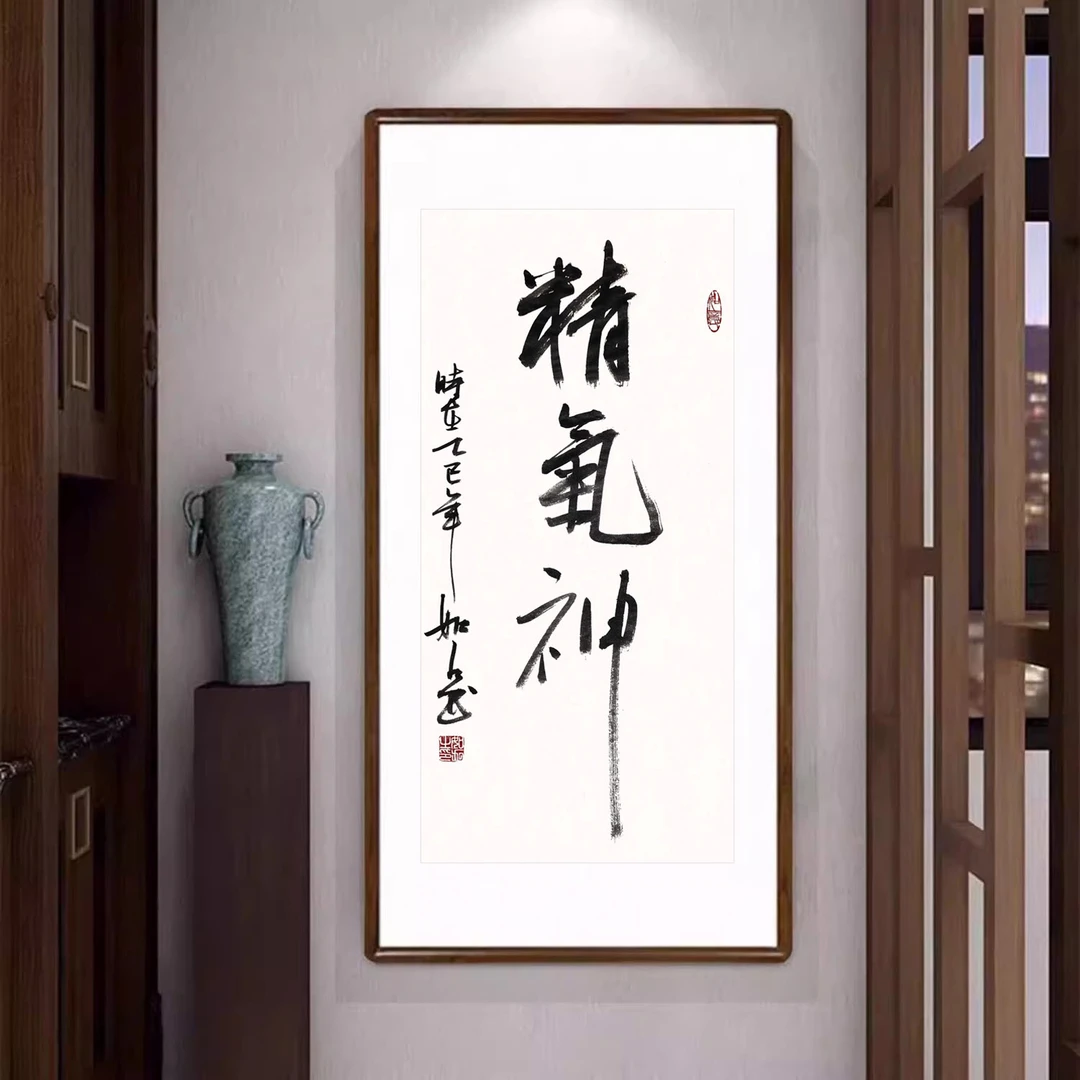 精氣神
時在乙巳年